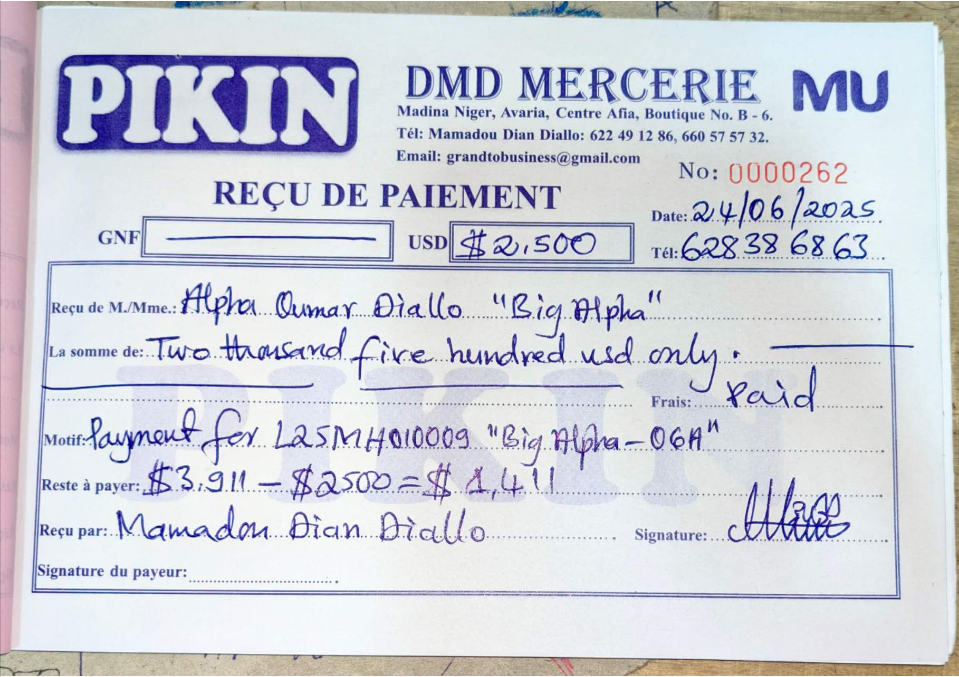 PIKIN
DMD MERCERIE
MU
Madina Niger, Avaria, Centre Afia, Boutique No. B - 6.
Tél: Mamadou Dian Diallo: 622 49 12 86, 660 57 57 32.
Email: grandtobusiness@gmail.com
No: 0000262
REÇU DE PAIEMENT
Date: 24/06/2025
GNF
USD $2,500
Tél: 628 38 68 63
Reçu de M./Mme.: Alpha Oumar Diallo "Big Alpha"
La somme de: Two thousand five hundred usd only.
Frais: Paid
Motif: Payment for L25MH010009 "Big Alpha-06A"
Reste à payer: $3,911 - $2500 = $1,411
Reçu par: Mamadou Dian Diallo
Signature:
Signature du payeur:
PIKIN